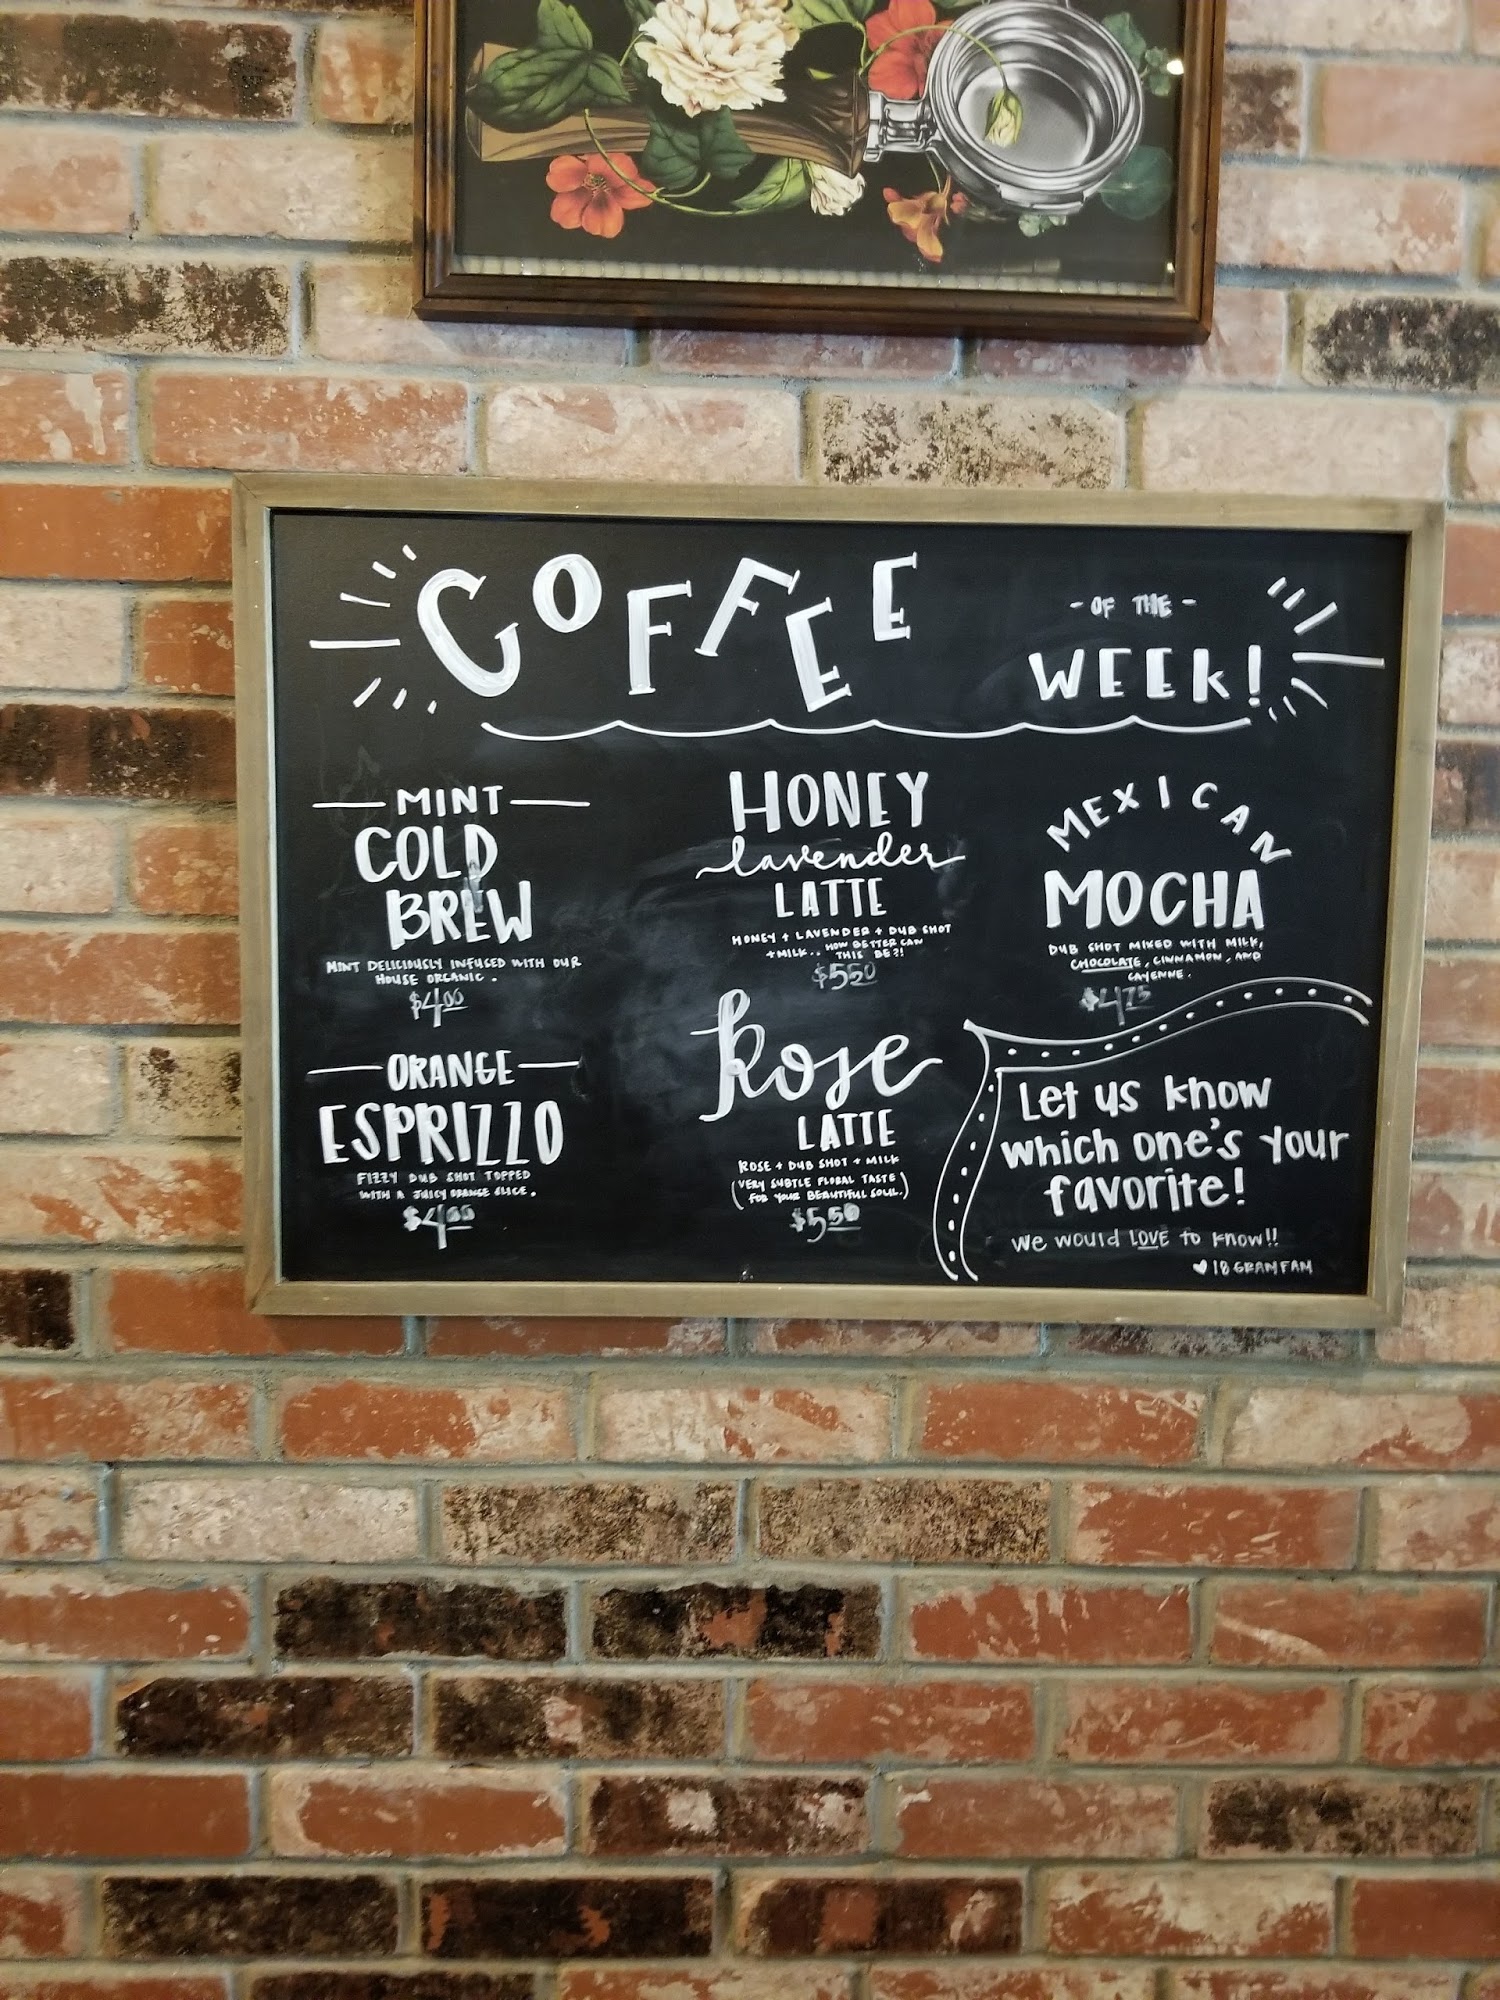 COFFEE
- OF THE -
WEEK!
MINT
COLD
BREW
MINT DELICIOUSLY INFUSED WITH OUR
HOUSE ORGANIC.
$4.00
ORANGE
ESPRIZZO
FIZZY DUB SHOT TOPPED
WITH A JUICY ORANGE SLICE.
$4.00
HONEY
lavender
LATTE
HONEY + LAVENDER + DUB SHOT
+ MILK.. HOW BETTER CAN
THIS BE?!
$5.50
Rose
LATTE
ROSE + DUB SHOT + MILK
(VERY SUBTLE FLORAL TASTE
FOR YOUR BEAUTIFUL SOUL.)
$5.50
MEXICAN
MOCHA
DUB SHOT MIXED WITH MILK,
CHOCOLATE, CINNAMON, AND
CAYENNE.
$4.75
Let us know
which one's your
favorite!
We would LOVE to know!!
♥ 18 GRAM FAM